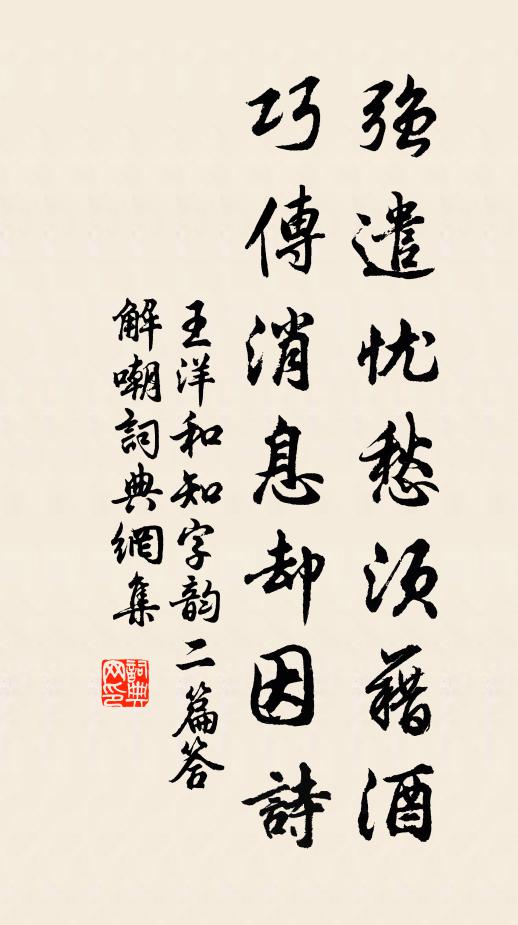 强遣忧愁须藉酒
巧傳消息却因詩
王洋和知字韵二篇答
解嘲詞典網集
詞典网印